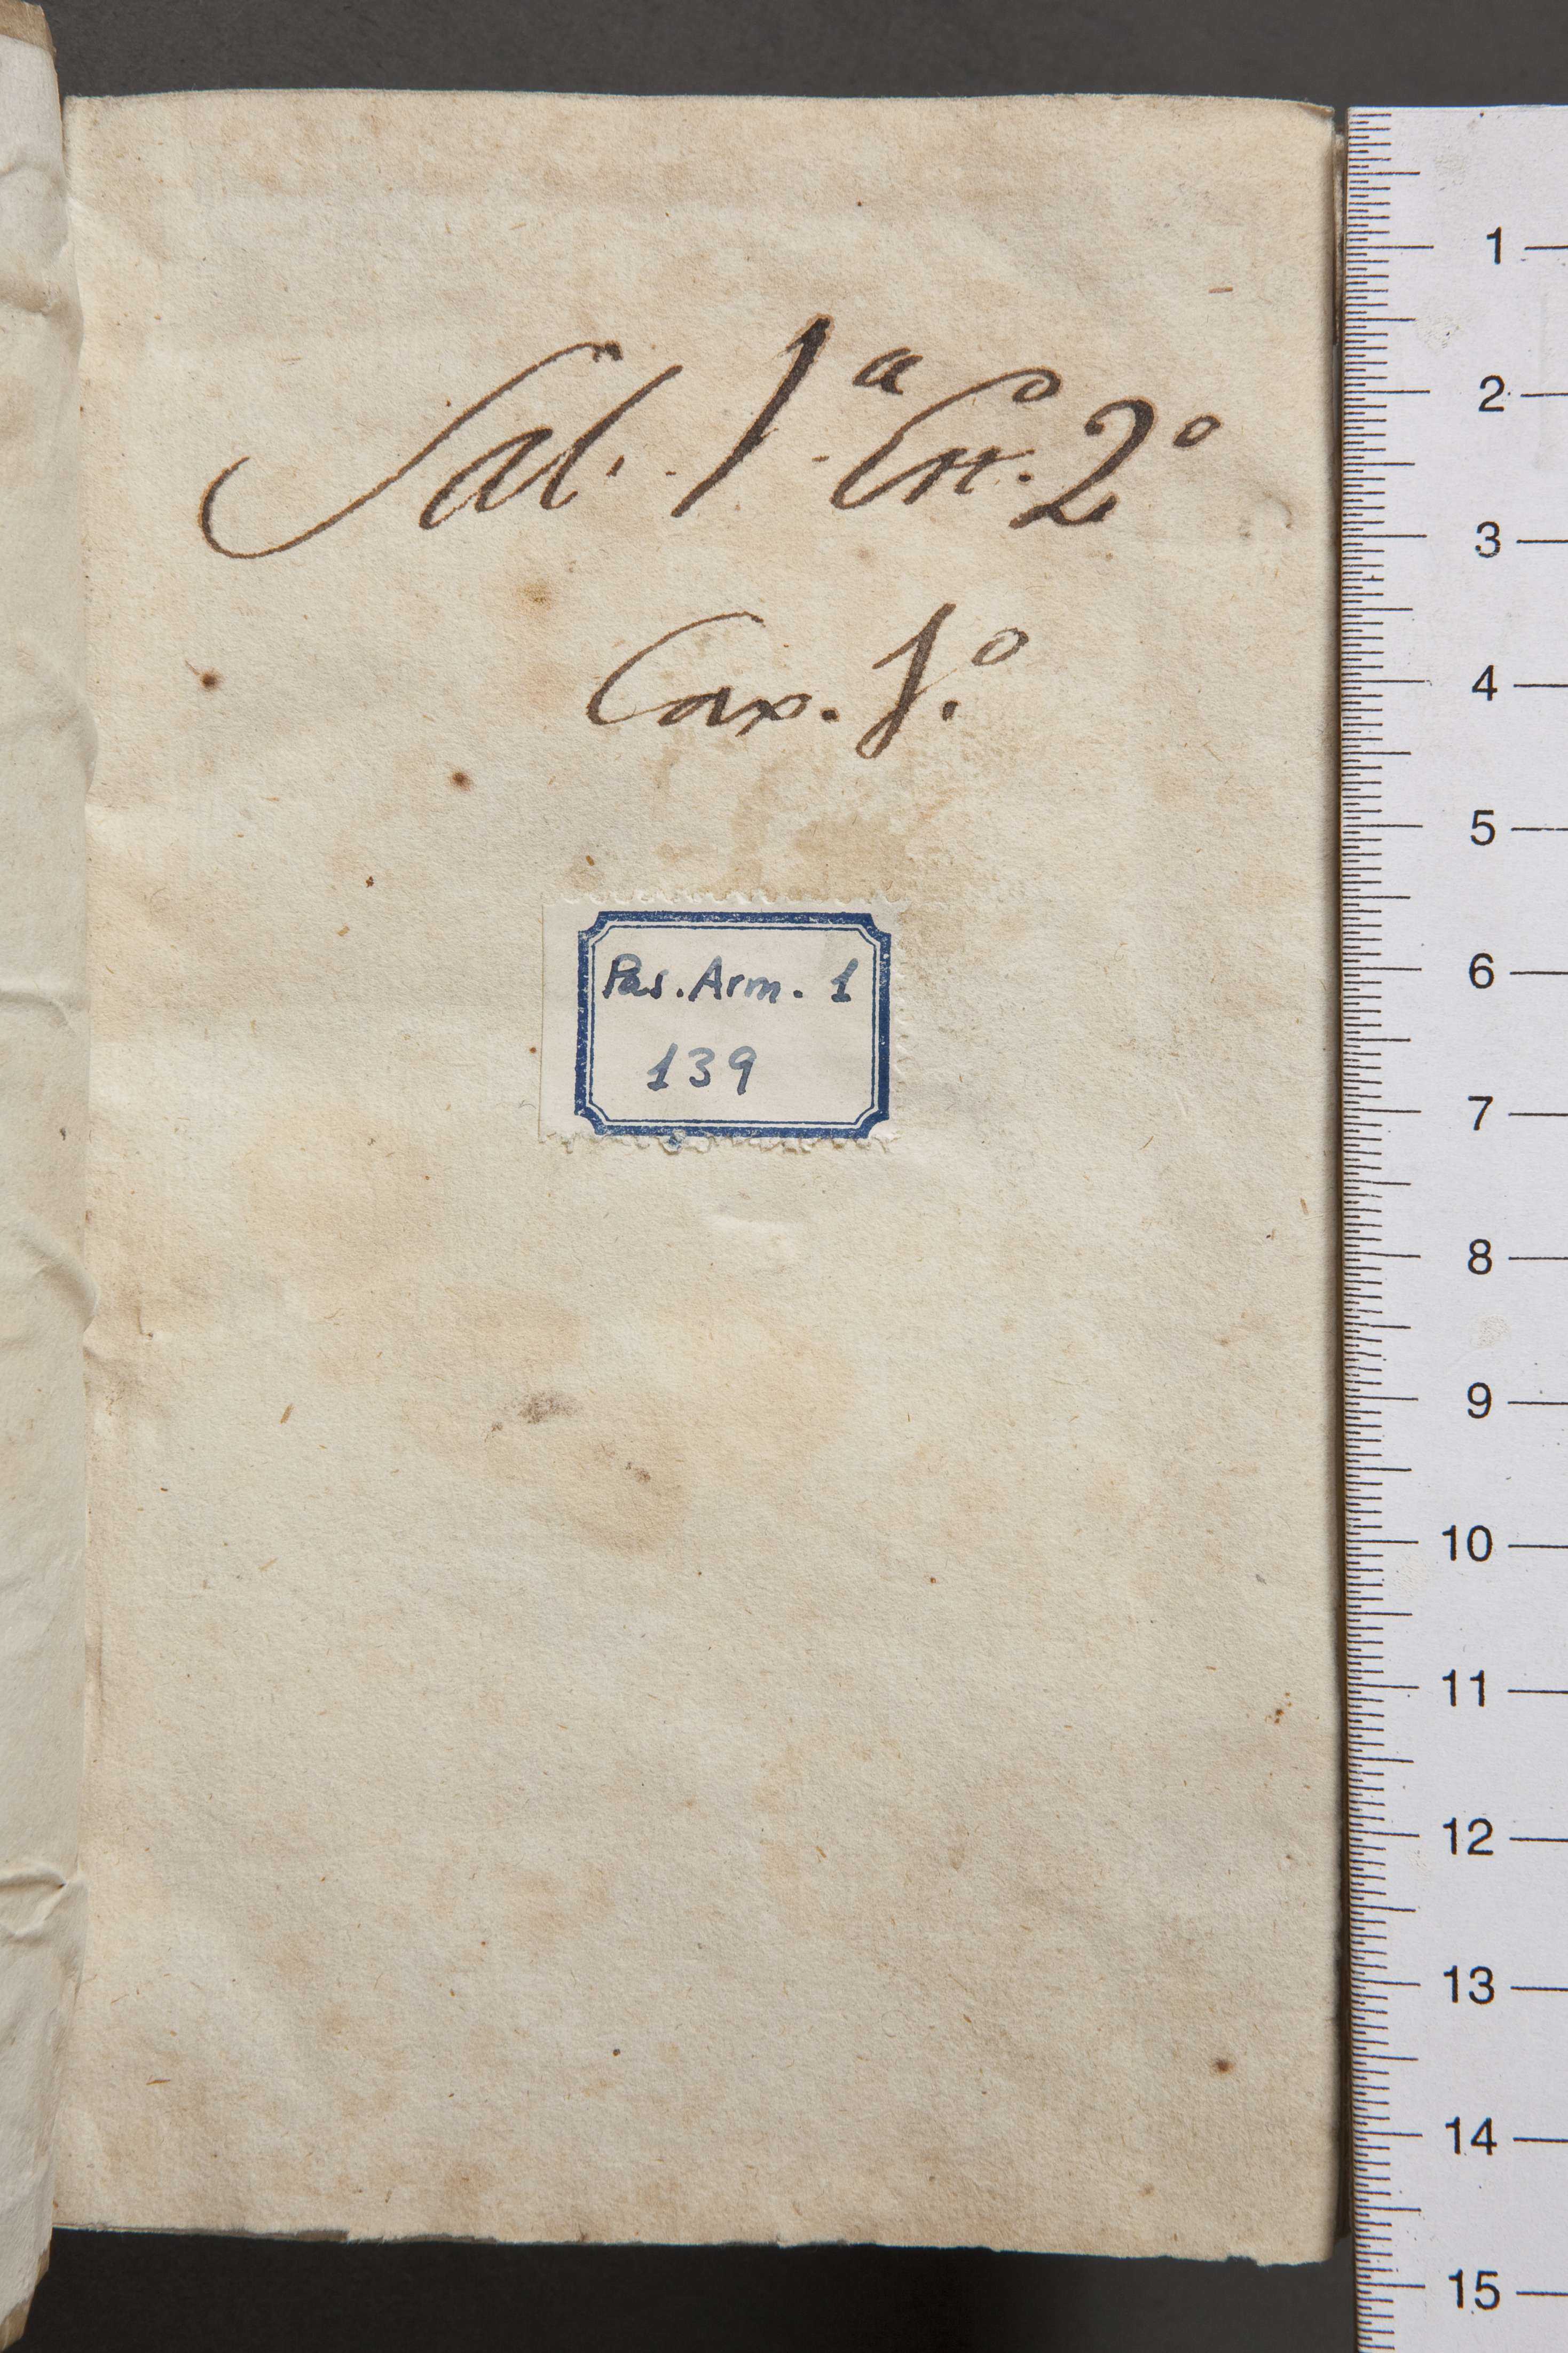 Sal. 1.ª Est. 2º
Cax. 1.º
Pas. Arm. 1
139
1
2
3
4
5
6
7
8
9
10
11
12
13
14
15